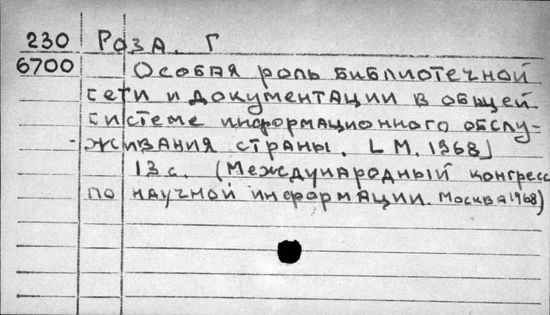 230 Роза. Г
6700 Особая роль библиотечной
сети и документации в общей
системе информационного обслу-
живания страны. [М. 1968]
13 с. (Международный конгресс
по научной информации. Москва 1968)